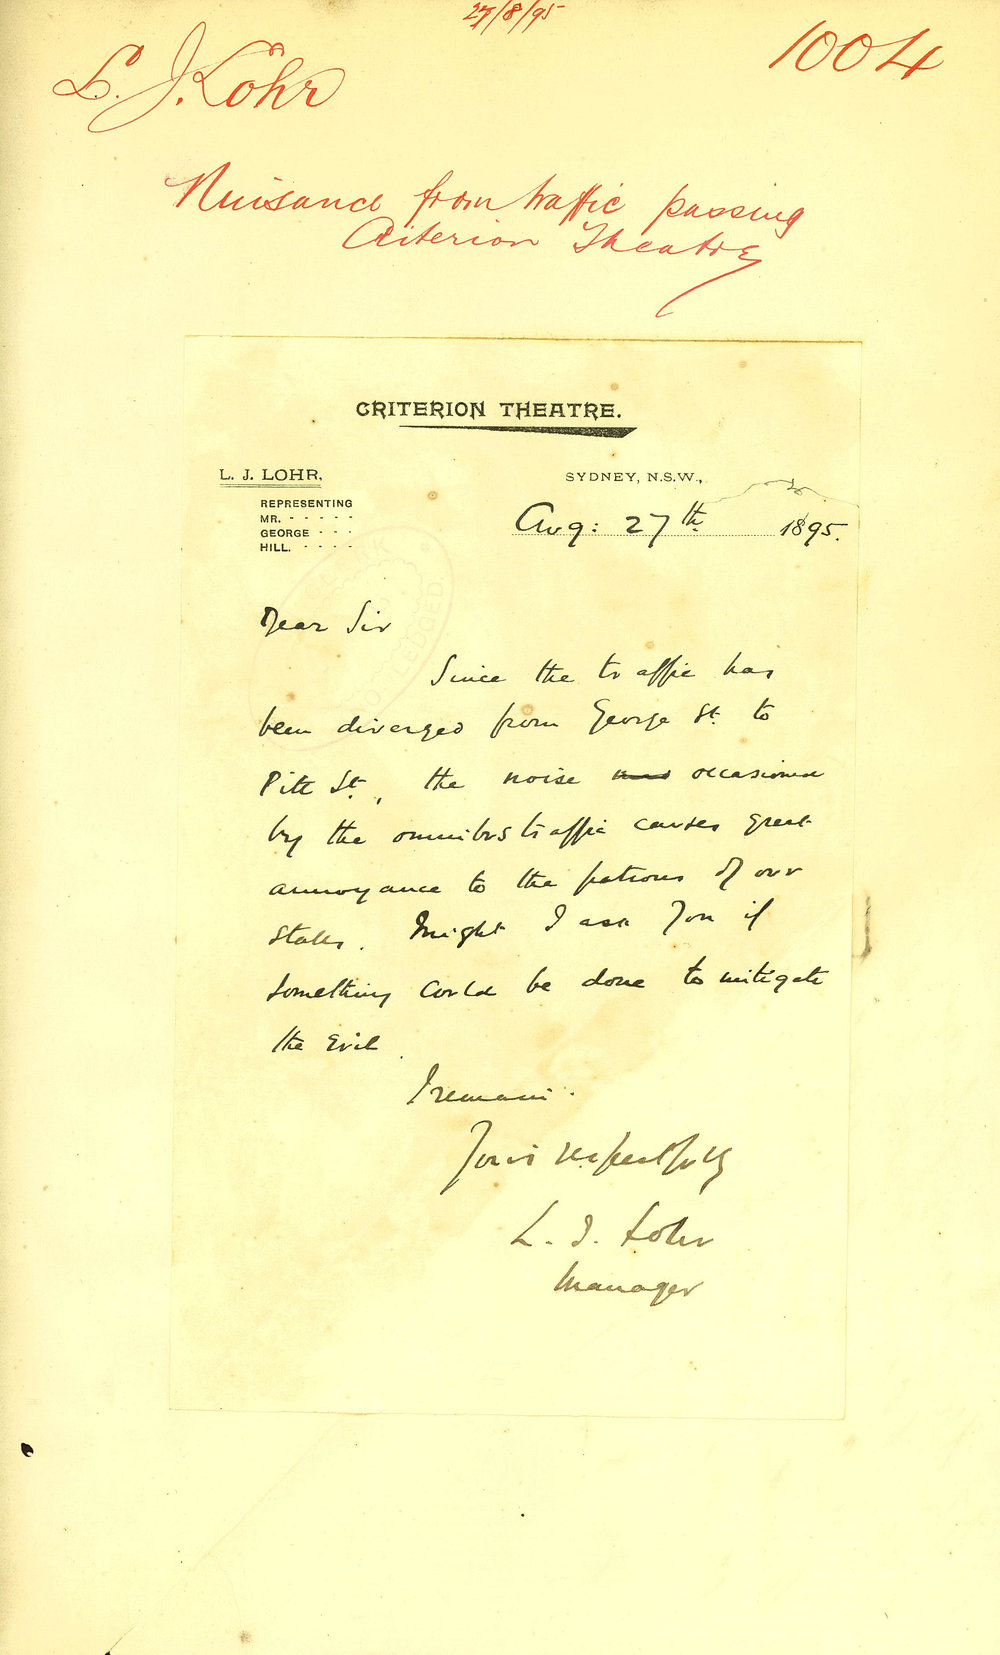 27/8/95
L. J. Lohr
1004
Nuisance from traffic passing
Criterion Theatre
CRITERION THEATRE.
L. J. LOHR,
REPRESENTING
MR. - - - - -
GEORGE - - -
HILL. - - - -
SYDNEY, N.S.W.,
Aug: 27th 1895.
Dear Sir
Since the traffic has
been diverged from George St. to
Pitt St., the noise occasioned
by the omnibus traffic causes great
annoyance to the patrons of our
stalls. Might I ask you if
something could be done to mitigate
the evil.
I remain.
Yours respectfully
L. J. Lohr
Manager